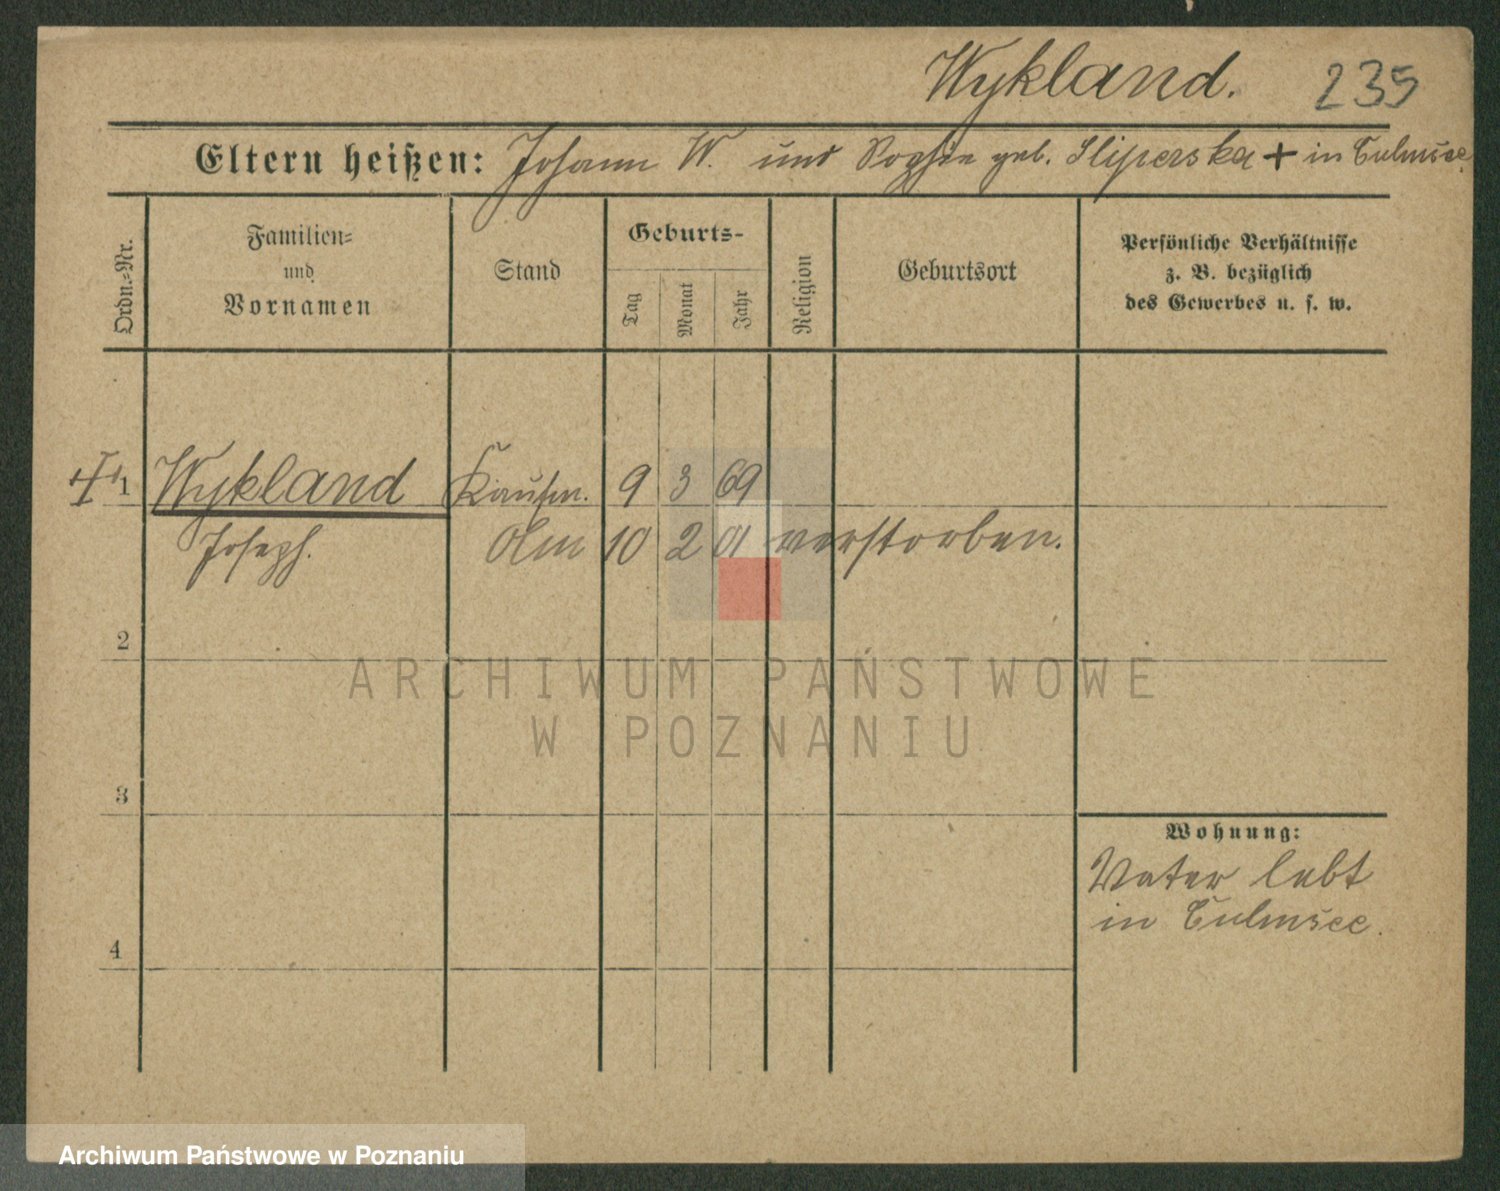 Wykland. 235
Eltern heißen: Johann W. und Sophie geb. Sliperska + in Culmsee.
Ordn.=Nr.
Familien=
und
Vornamen
Stand
Geburts-
Tag
Monat
Jahr
Religion
Geburtsort
Persönliche Verhältnisse
z. B. bezüglich
des Gewerbes u. s. w.
1 Wykland Kaufm. 9 3 69
Joseph. Am 10 2 01 verstorben.
2
3
4
Wohnung:
Vater lebt
in Culmsee.
ARCHIWUM PAŃSTWOWE
W POZNANIU
Archiwum Państwowe w Poznaniu